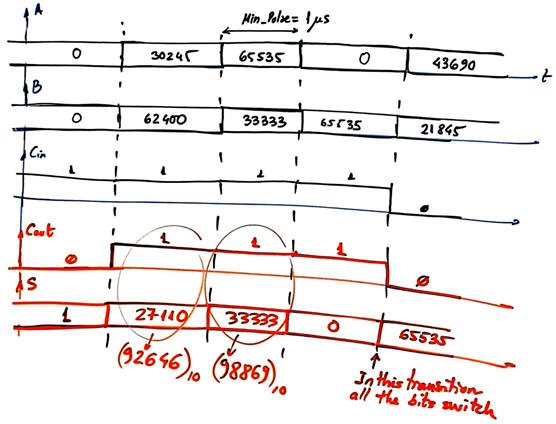 A
Min_Pulse = 1 μs
0 30245 65535 0 43690
t
B
0 62400 33333 65535 21845
Cin
1 1 1 1 0
Cout
0 1 1 1 0
S
1 27110 33333 0 65535
(92646)10 (98869)10
In this transition
all the bits switch